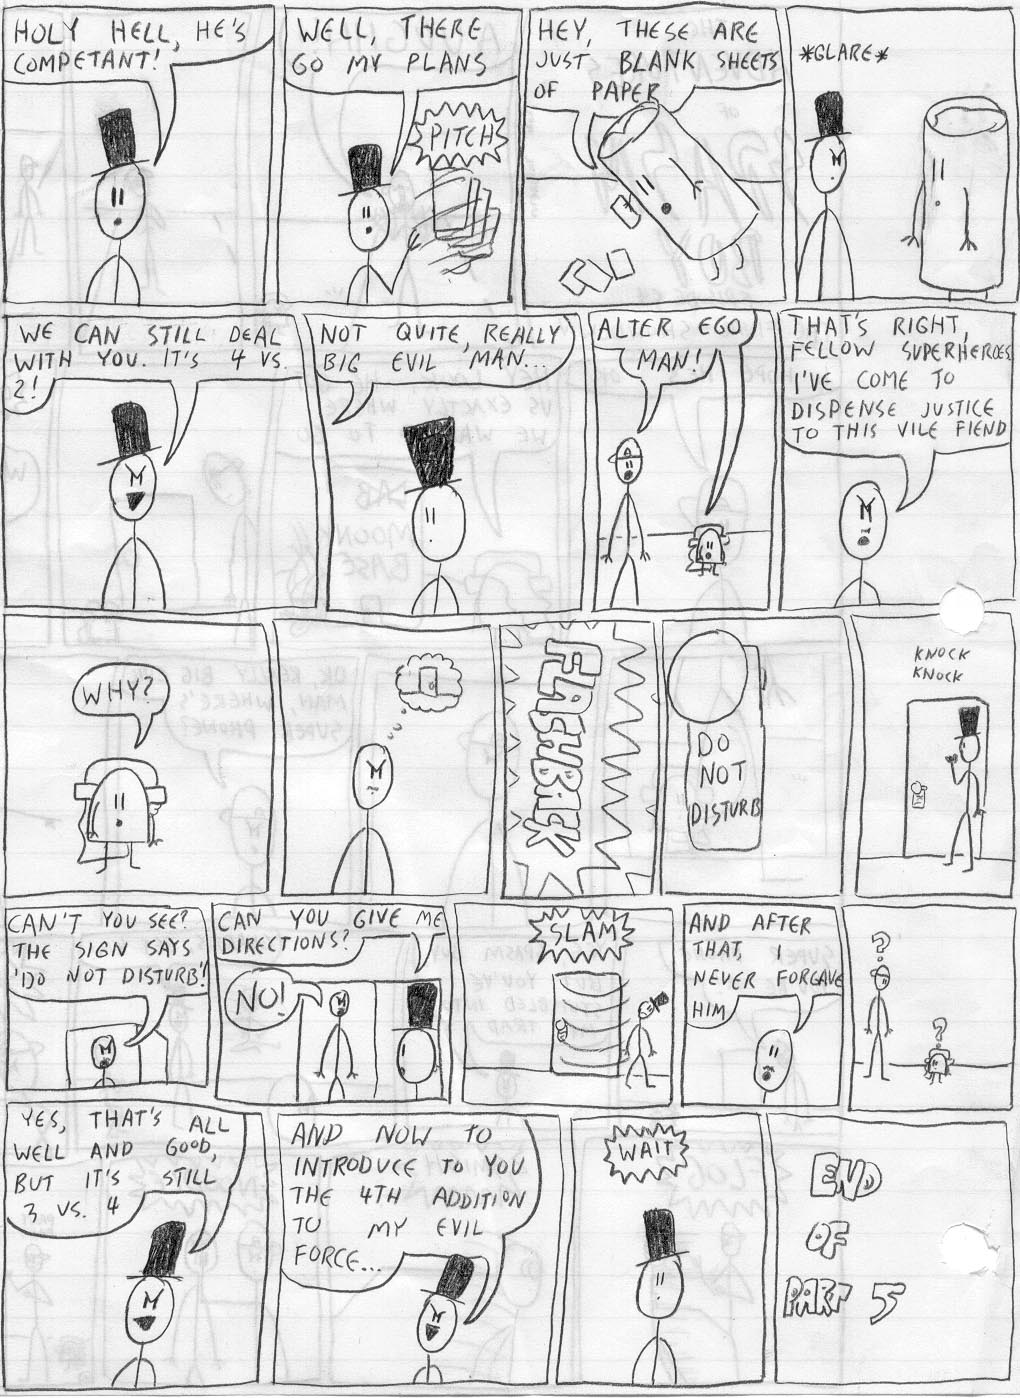 HOLY HELL, HE'S
COMPETANT!
WELL, THERE
GO MY PLANS
PITCH
HEY, THESE ARE
JUST BLANK SHEETS
OF PAPER
*GLARE*
WE CAN STILL DEAL
WITH YOU. IT'S 4 VS.
2!
NOT QUITE, REALLY
BIG EVIL MAN...
ALTER EGO
MAN!
A
THAT'S RIGHT,
FELLOW SUPERHEROES
I'VE COME TO
DISPENSE JUSTICE
TO THIS VILE FIEND
WHY?
FLASHBACK
DO
NOT
DISTURB
KNOCK
KNOCK
CAN'T YOU SEE?
THE SIGN SAYS
'DO NOT DISTURB'!
CAN YOU GIVE ME
DIRECTIONS?
NO!
SLAM
AND AFTER
THAT, I
NEVER FORGAVE
HIM
?
?
YES, THAT'S ALL
WELL AND GOOD,
BUT IT'S STILL
3 VS. 4
AND NOW TO
INTRODUCE TO YOU
THE 4TH ADDITION
TO MY EVIL
FORCE...
WAIT
END
OF
PART 5